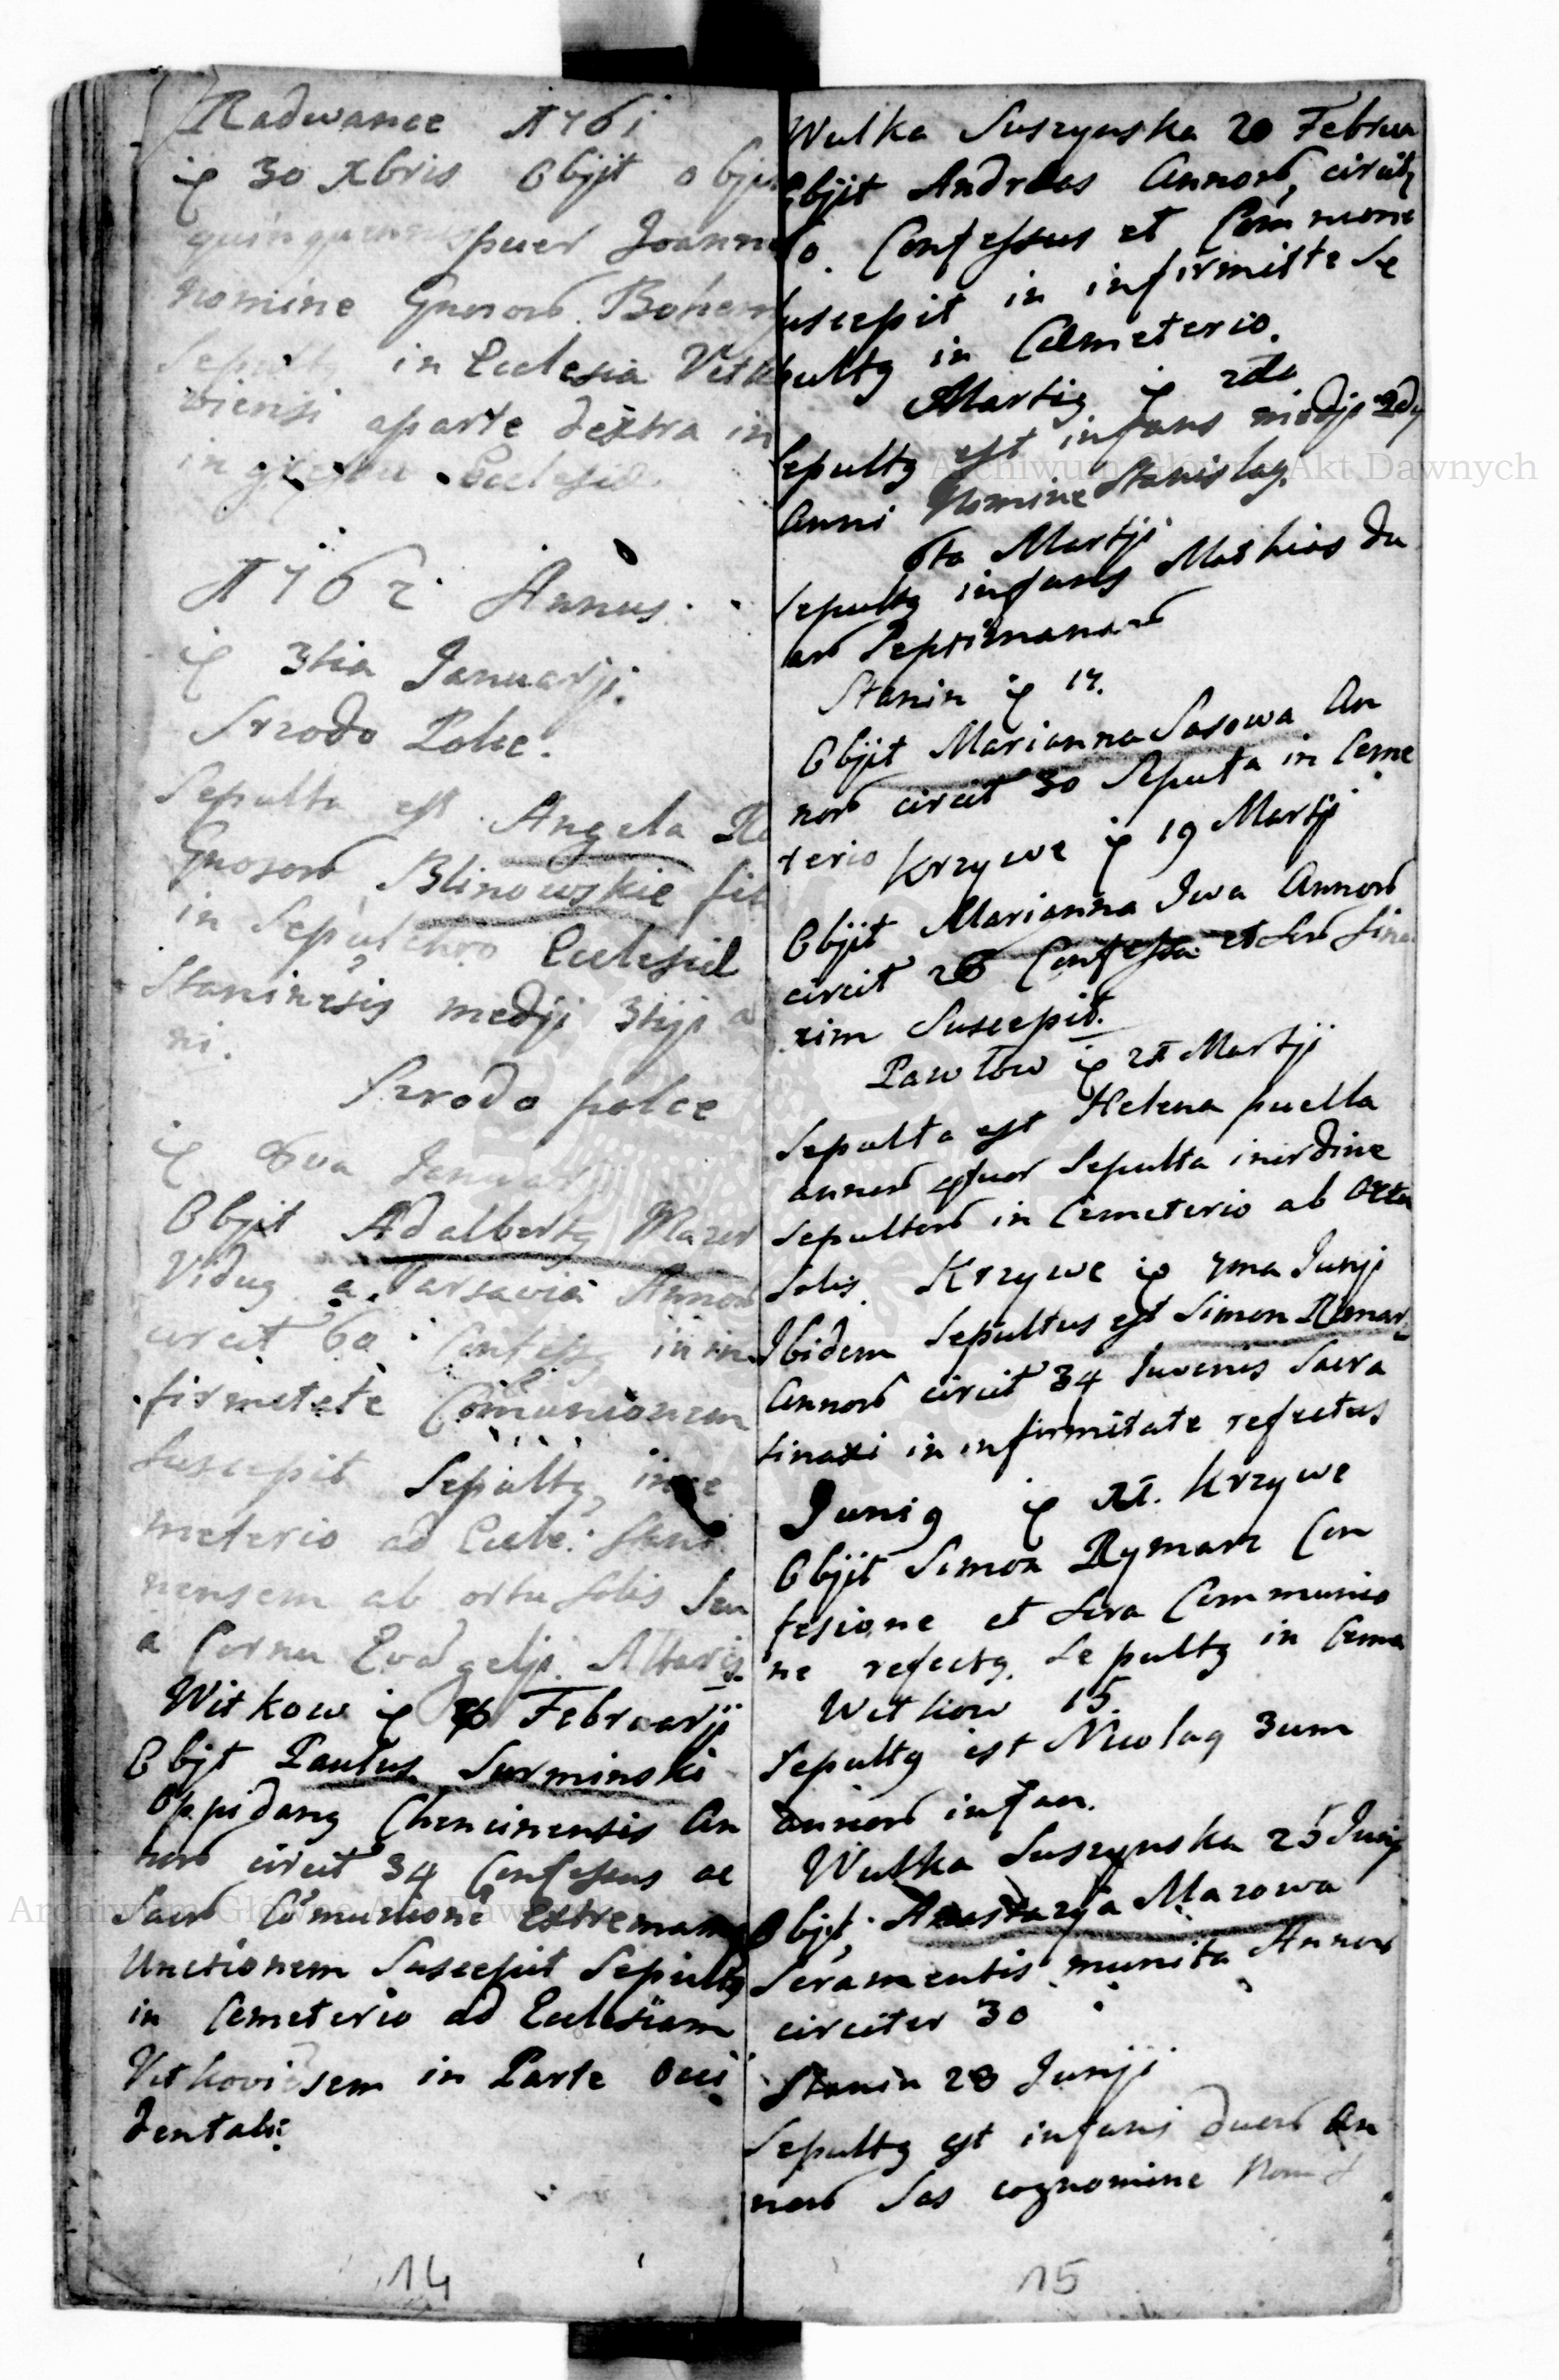 Radwance 1761
30 Xbris Objit objit
puer Joanne
Nomine Gnosorum Bohem
in Ecclesia Vitk
viensi aparte dextra in
in Ecclesiae
1762 Annus.
3tia Januarji.
Srzodo Polce.
Sepulta est Angela
Gnosorum Blinowskie fil
in Sepulchro Ecclesiae
Staninesis medji 3tiji a
ni.
Srzodo polce
8va Januarji
Objit Adalbertg Mazer
Vidug a Varsavia Annorum
circit 60 Confessg in in
firmetete Comunionem
Suscepit Sepultg in ce
meterio ad Eccle: Stani
nensem ab ortu solis seu
a Cornu Evagelji Altaris
Witkow Februarji
Objt Paulus Surminski
Oppidang Chencinensis An
norum circit 34 Confessus ac
Sacr Comunione Extremam
Unctionem Suscepit Sepultg
in Cemeterio ad Ecclesiam
Vitkoviesem in Parte Occi
dentali:
14
Wulka Suszynska 20 Februa
Objit Andreas Annorum circitg
Confessus et Commone
suscepit in infirmitte Se
pultg in Caemeterio.
Martig 2da
Sepultg est infans medji 2dj
Anni Nomine Stanislag.
6ta Martji
Sepultg infans Mathias du
arum Septimanarum
Stanin 17.
Objit Marianna Sasowa An
norum circit 30 Seputa in Ceme
terio Krzywe 19 Martji
Objit Marianna Iwa Annorum
circit 26 Confessa et Sina
xim Suscepit.
Pawlow Martji
Sepulta est Helena puella
annorum qtuor Sepulta inordine
Sepultorum in Cemeterio ab
Solis. Krzywe 7ma Junji
Ibidem Sepultus est Simon Rimar
Annorum circit 34 Juvenis Sacra
sinaxi in infirmitate refectus
Junig XI. Krzywe
Objit Simon Rymarz Con
fesione et Scra Communio
ne refectg. Sepultg in Ceme
Witkow 15.
Sepultg est Nicolag 3um
annorum infan.
Wulka Suszynska 25 Junij
Objit Anastazya Mazowa
Scramentis munita Annorum
circiter 30
Stanin 28 Junji
Sepultg est infans duorum An
norum Sas cognomine
15
Archiwum Główne Akt Dawnych
Archiwum Główne Akt Dawnych